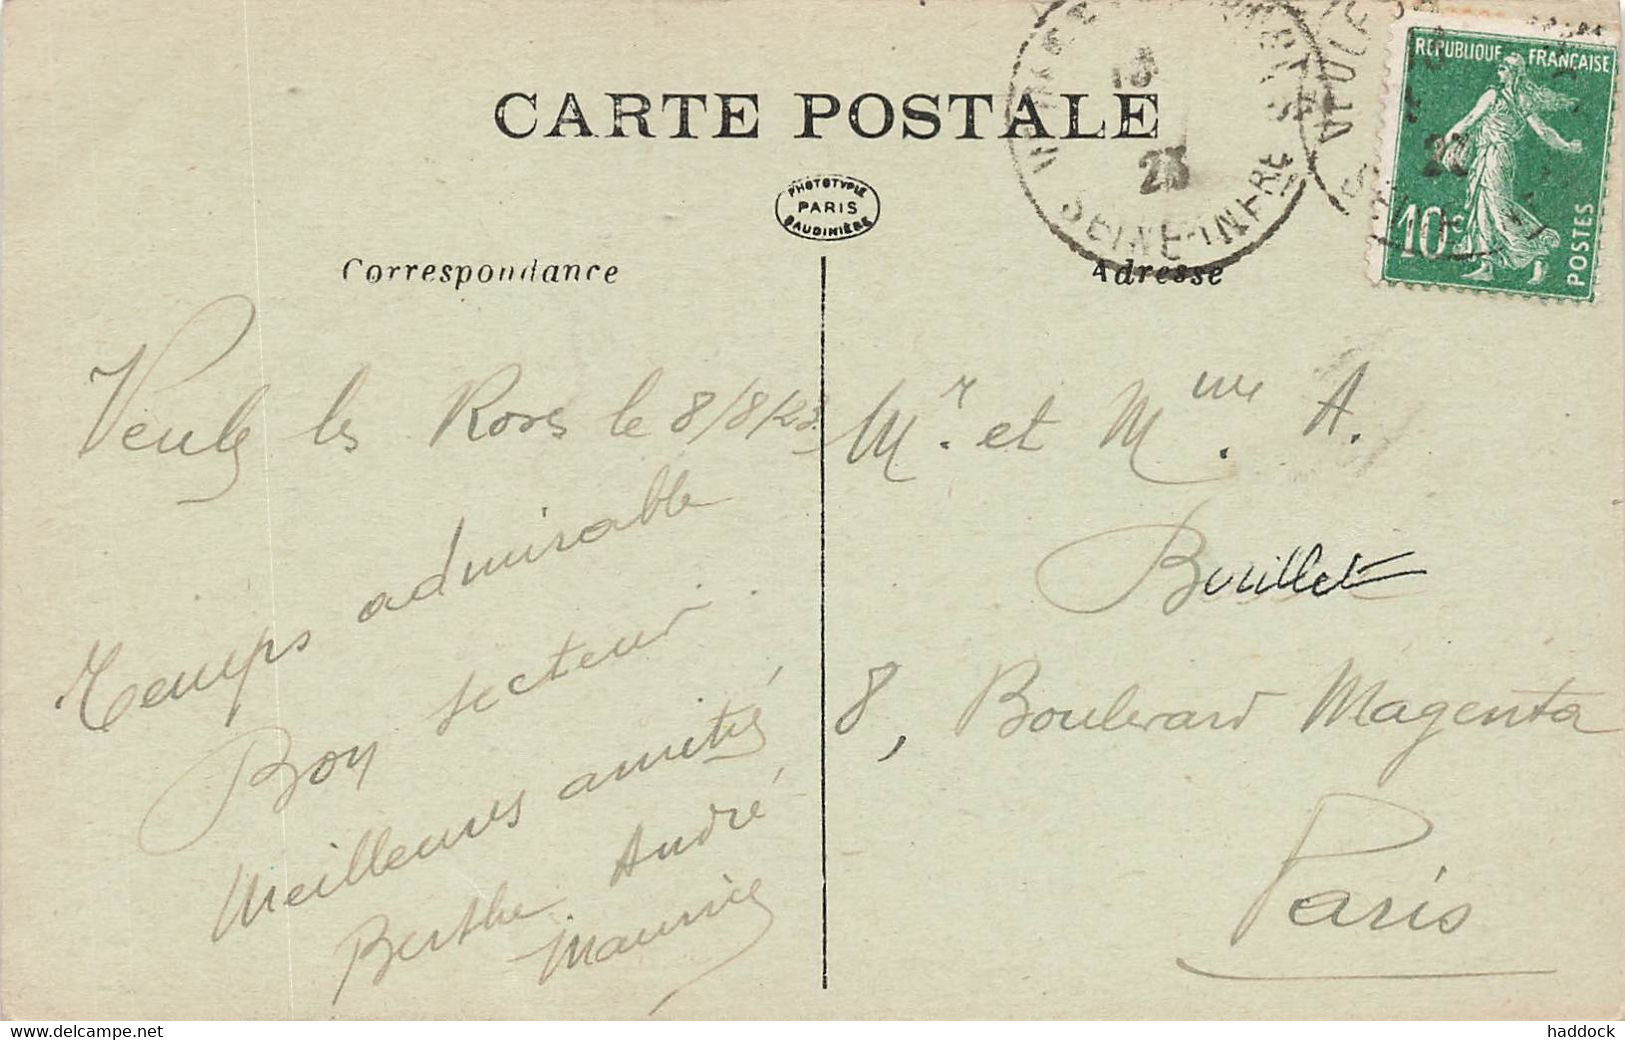 CARTE POSTALE
PHOTOTYPIE
PARIS
BAUDINIÈRE
Correspondance
Veules les Roses le 8/8/23.
Temps admirable
Bon secteur.
Meilleures amitiés
Berthe. André
Maurice
Adresse
Mr. et Mme. A.
Bouillet
8, Boulevard Magenta
Paris
23
SEINE-INFRE
REPUBLIQUE FRANÇAISE
10c
POSTES
www.delcampe.net
haddock